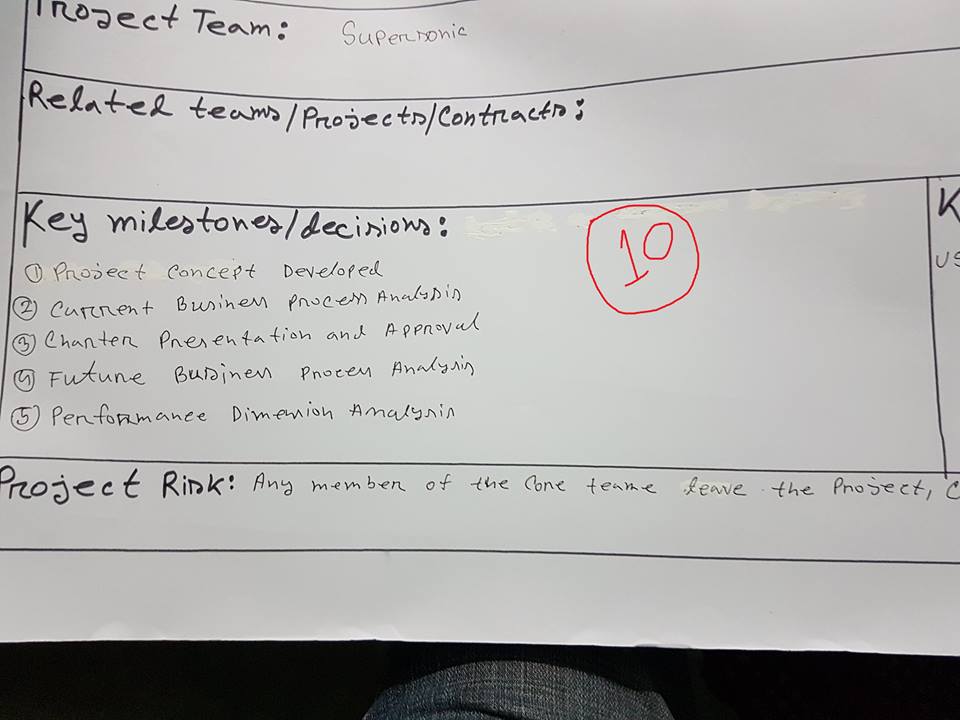 Project Team: Supersonic
Related teams/Projects/Contracts:
Key milestones/decisions:
10
K
① Project Concept Developed
us
② Current Business process Analysis
③ Charter Presentation and Approval
④ Future Business Process Analysis
⑤ Performance Dimension Analysis
Project Risk: Any member of the Core teame leave the Project, C